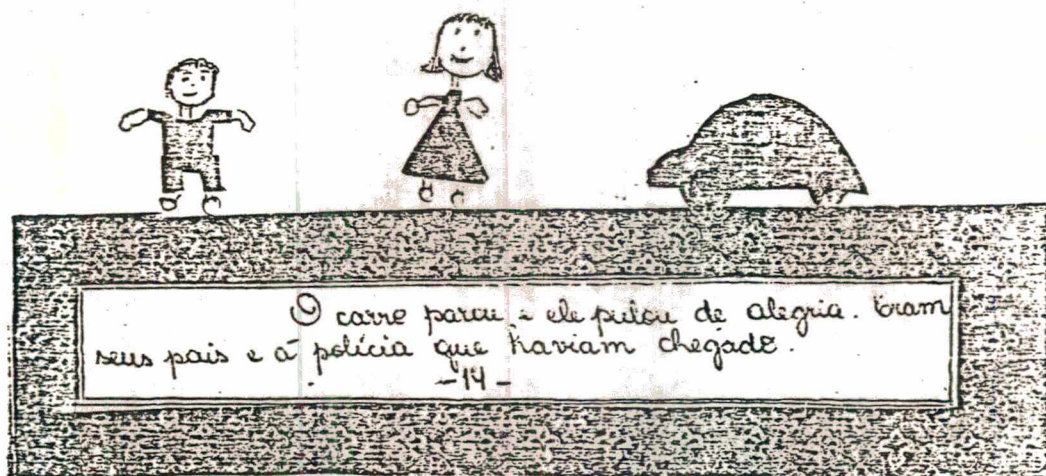 O carro parou e ele pulou de alegria. Eram
seus pais e a polícia que haviam chegado.
-14-